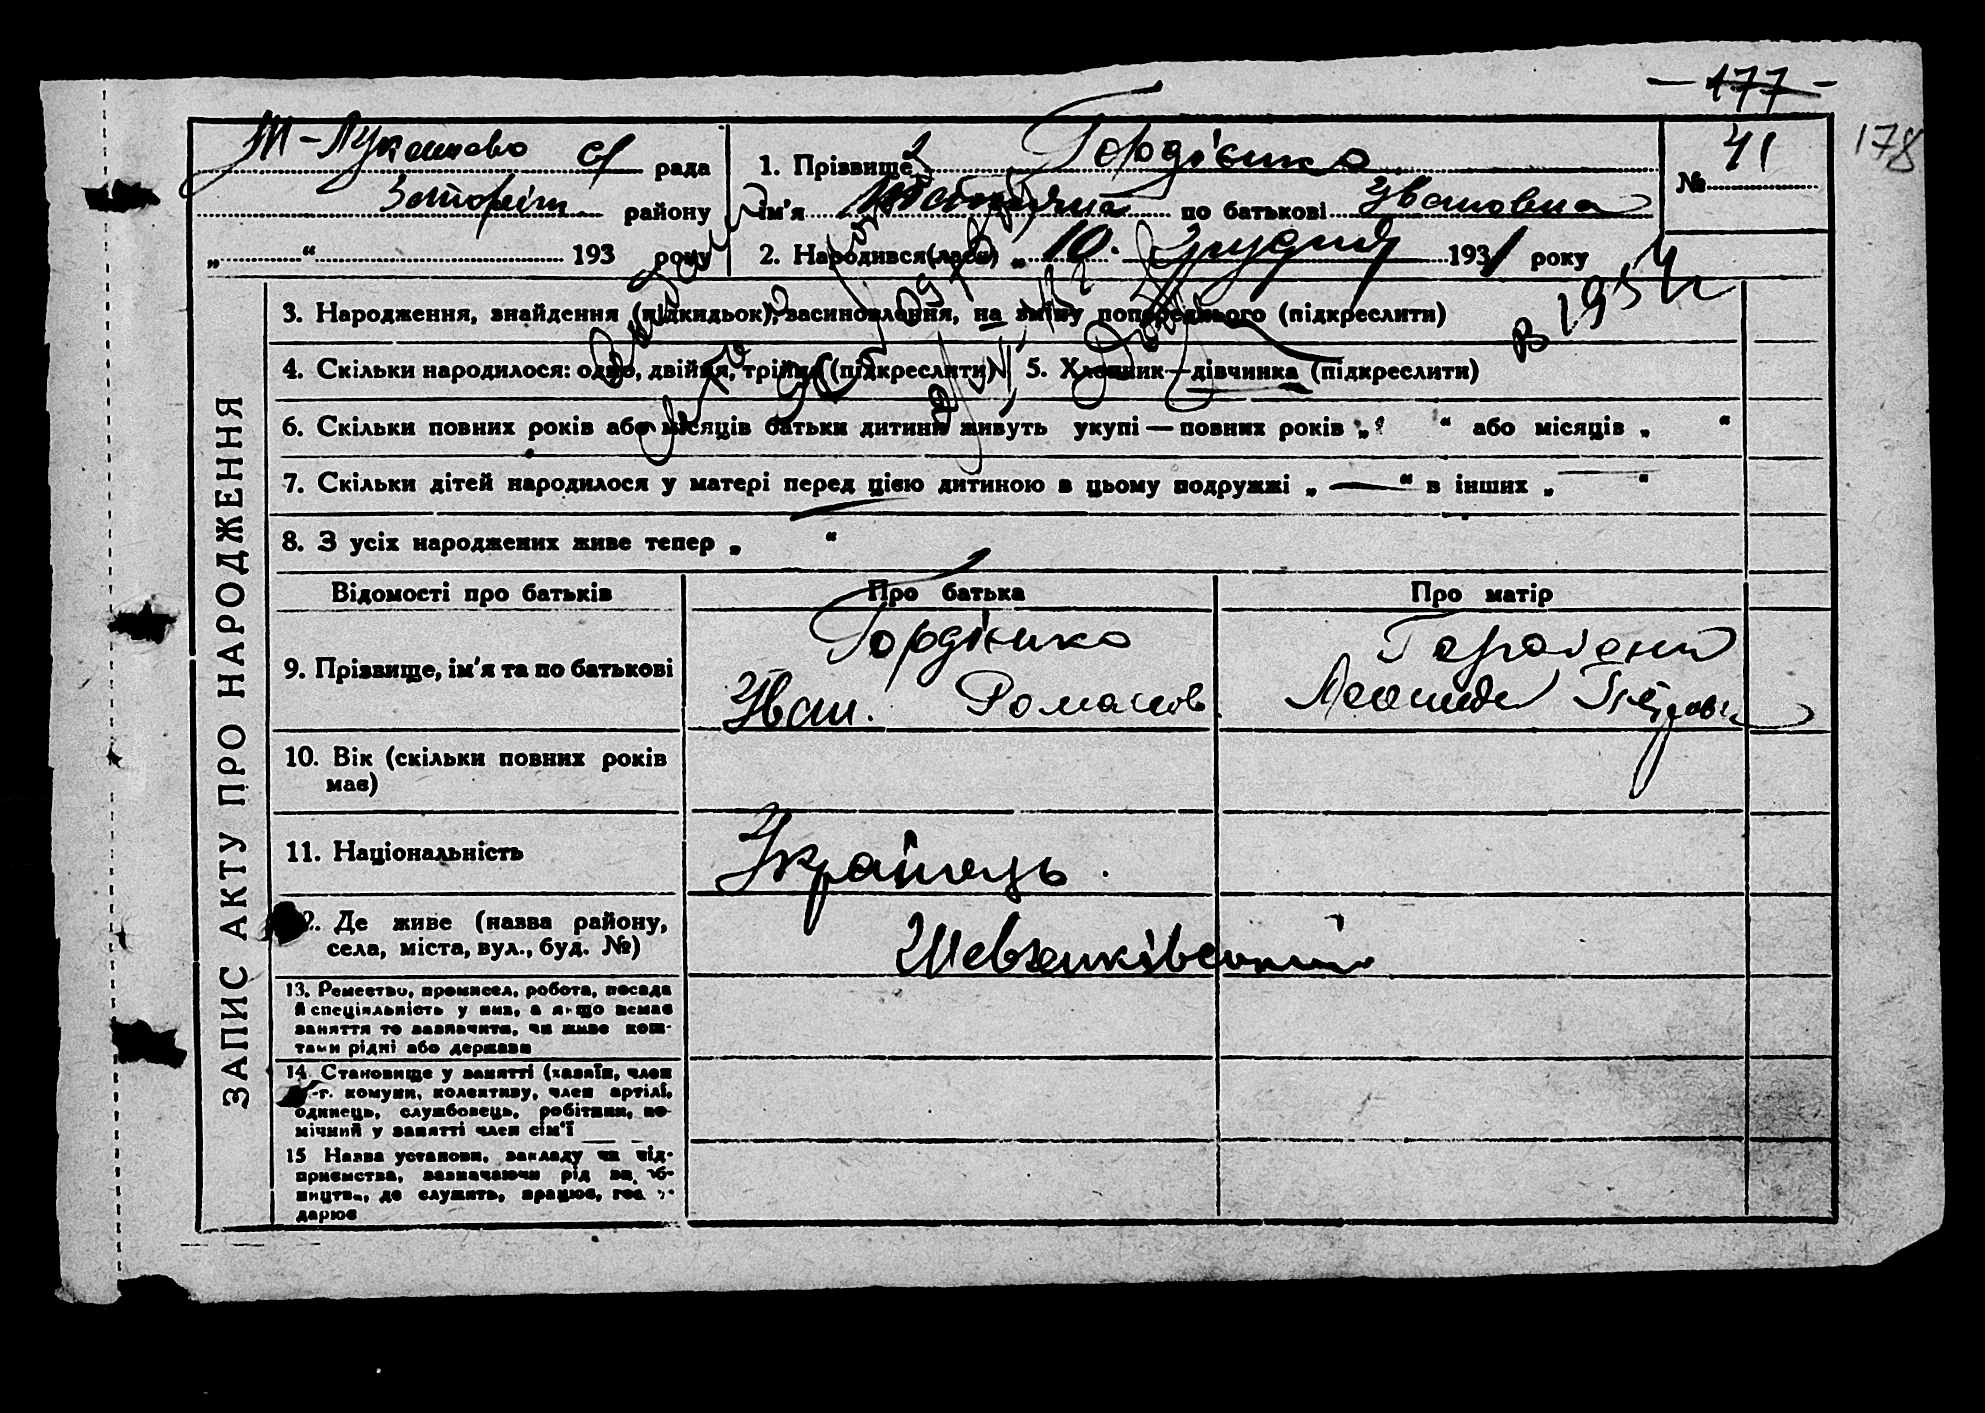 — 177 —
178
М-Лукашево с/ рада
району
„ “ 193 року
1. Прізвище Гордієнко
ім'я по батькові Івановна
2. Народився(лася) „ 10 Грудня 1931 року
№ 41
3. Народження, знайдення (підкидьок), засиновлення, на зміну попереднього (підкреслити)
4. Скільки народилося: одно, двійня, трійня (підкреслити) 5. Хлопчик—дівчинка (підкреслити)
6. Скільки повних років або місяців батьки дитини живуть укупі — повних років „ “ або місяців „ “
7. Скільки дітей народилося у матері перед цією дитиною в цьому подружжі „ — “ в інших „ “
8. З усіх народжених живе тепер „ “
ЗАПИС АКТУ ПРО НАРОДЖЕННЯ
Відомості про батьків Про батька Про матір
9. Прізвище, ім'я та по батькові
Гордієнко
Іван Романов
10. Вік (скільки повних років
має)
11. Національність Українець
12. Де живе (назва району,
села, міста, вул., буд. №)
Шевченківський
13. Ремество, промисел, робота, посада
й спеціяльність у них, а якщо немає
заняття то зазначити, чи живе кош-
тами рідні або держави
14. Становище у занятті (хазяїн, член
с.-г. комуни, колективу, член артілі,
одинець, службовець, робітник, по-
мічний у занятті член сім'ї
15 Назва установи, закладу чи під-
приємства, зазначаючи рід вироб-
ництва, де служить, працює, госпо-
дарює